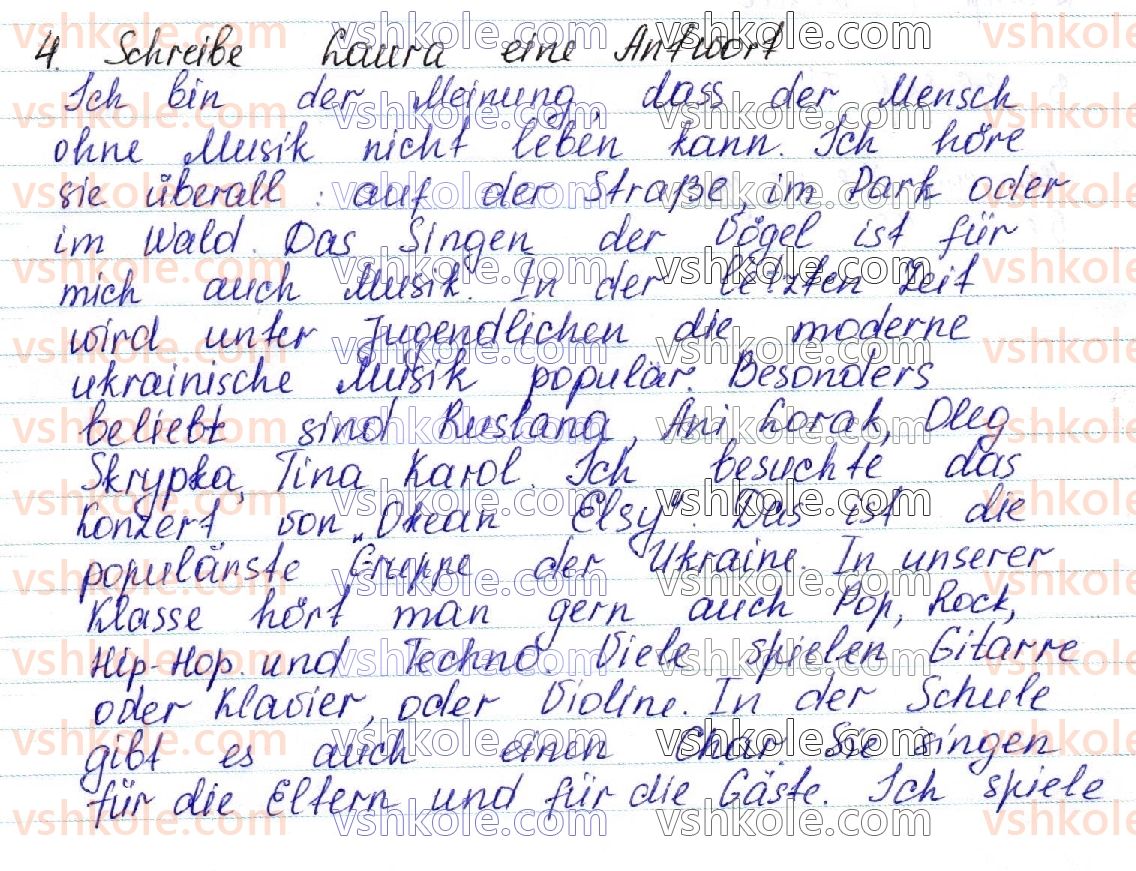 4. Schreibe Laura eine Antwort
Ich bin der Meinung, dass der Mensch
ohne Musik nicht leben kann. Ich höre
sie überall: auf der Straße, im Park oder
im Wald. Das Singen der Vögel ist für
mich auch Musik. In der letzten Zeit
wird unter Jugendlichen die moderne
ukrainische Musik populär. Besonders
beliebt sind Ruslana, Ani Lorak, Oleg
Skrypka, Tina Karol. Ich besuchte das
Konzert von „Okean Elsy“. Das ist die
populänste Gruppe der Ukraine. In unserer
Klasse hört man gern auch Pop, Rock,
Hip-Hop und Techno. Viele spielen Gitarre
oder Klavier, oder Violine. In der Schule
gibt es auch einen Char. Sie singen
für die Eltern und für die Gäste. Ich spiele